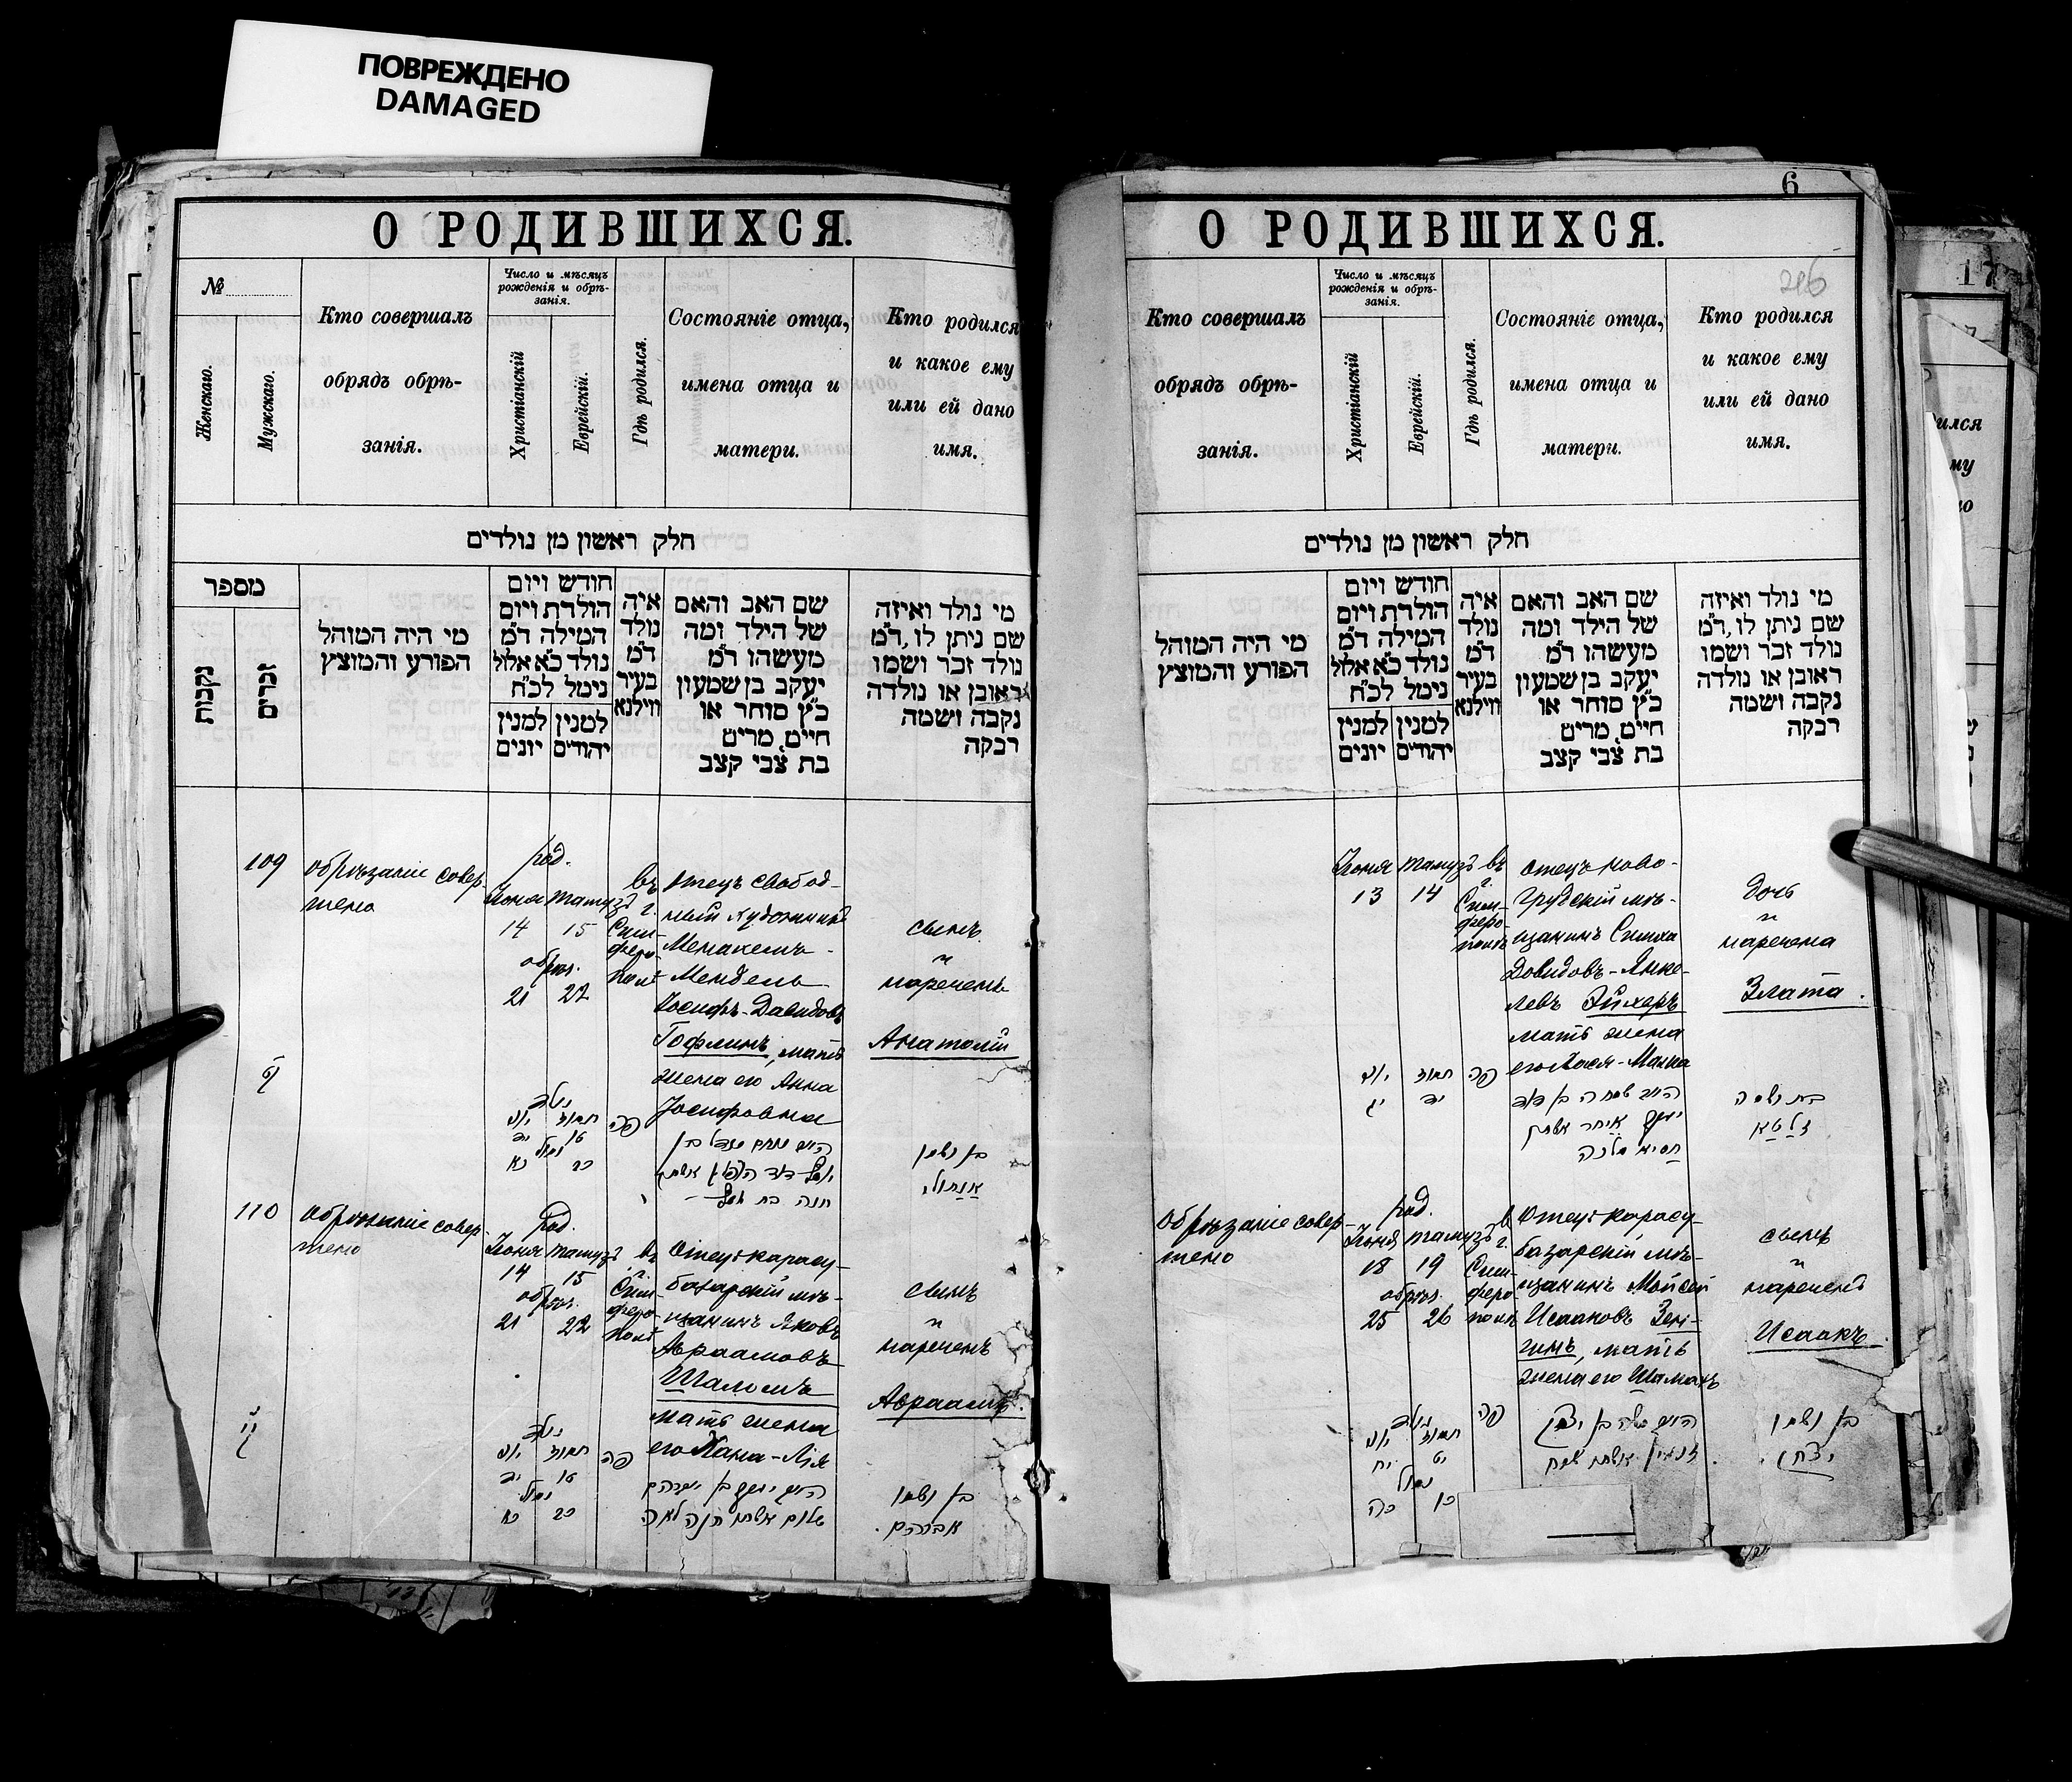 ПОВРЕЖДЕНО
DAMAGED
О РОДИВШИХСЯ.
№
Женскаго.
Мужскаго.
Кто совершалъ
обрядъ обрѣ-
занія.
Число и мѣсяцъ
рожденія и обрѣ-
занія.
Христіанскій
Еврейскій.
Гдѣ родился.
Состояніе отца,
имена отца и
матери.
Кто родился
и какое ему
или ей дано
имя.
חלק ראשון מן נולדים
מספר
נקבות
זכרים
מי היה המוהל
הפורע והמוצץ
חודש ויום
הולדת ויום
המילה ד״מ
נולד כ״א אלול
נימל לכ״ח
למנין למנין
יהודים יונים
איה
נולד
ד״מ
בעיר
ווילנא
שם האב והאם
של הילד ומה
מעשהו ד״מ
יעקב בן שמעון
כ״ץ סוחר או
חייט, מרים
בת צבי קצב
מי נולד ואיזה
שם ניתן לו, ד״מ
נולד זכר ושמו
ראובן או נולדה
נקבה ושמה
רבקה
109
обрѣзаніе совер-
шено
род.
Іюня Тамузъ
14 15
обрѣз.
21 22
въ
г.
Сим-
феро-
полѣ
Отецъ свобод-
ный художникъ
Менахемъ-
Мендель
Іосифъ-Давидовъ
Гофлинъ, мать
жена его Анна
Іосифовна
сынъ
и
нареченъ
Анатолій
נולד
תמוז יוני
פה
בן ושמו
חנה בת יוסף
110
Обрѣзаніе совер-
шено
Род.
Іюня Тамузъ
14 15
обрѣз.
21 22
въ
г.
Сим-
феро-
полѣ
Отецъ карасу-
базарскій мѣ-
щанинъ Яковъ
Авраамовъ
Шаломъ
мать жена
его Хана-Лія
сынъ
и
нареченъ
Авраамъ.
נולד
תמוז יוני
פה
שלום אשתו חנה לאה
בן ושמו
אברהם.
6
О РОДИВШИХСЯ.
Кто совершалъ
обрядъ обрѣ-
занія.
Число и мѣсяцъ
рожденія и обрѣ-
занія.
Христіанскій
Еврейскій.
Гдѣ родился.
Состояніе отца,
имена отца и
матери.
Кто родился
и какое ему
или ей дано
имя.
חלק ראשון מן נולדים
מי היה המוהל
הפורע והמוצץ
חודש ויום
הולדת ויום
המילה ד״מ
נולד כ״א אלול
נימל לכ״ח
למנין למנין
יהודים יונים
איה
נולד
ד״מ
בעיר
ווילנא
שם האב והאם
של הילד ומה
מעשהו ד״מ
יעקב בן שמעון
כ״ץ סוחר או
חייט, מרים
בת צבי קצב
מי נולד ואיזה
שם ניתן לו, ד״מ
נולד זכר ושמו
ראובן או נולדה
נקבה ושמה
רבקה
Іюня Тамузъ
13 14
въ
г.
Сим-
феро-
полѣ
Отецъ ново-
грудскій мѣ-
щанинъ Симха
Довидовъ-Янке-
левъ Эйхеръ
мать жена
его Хася-Малка
Дочь
и
наречена
Злата.
תמוז יוני
יד יג
פה
בת ושמה
זלטא
Обрѣзаніе совер-
шено
род.
Іюня Тамузъ
18 19
обрѣз.
25 26
въ
г.
Сим-
феро-
полѣ
Отецъ карасу-
базарскій мѣ-
щанинъ Мойсей
Исааковъ
мать
жена его
сынъ
и
нареченъ
Исаакъ.
נולד
תמוז יוני
יט יח
נמול
כו כה
פה
בן ושמו
יצחק.
17